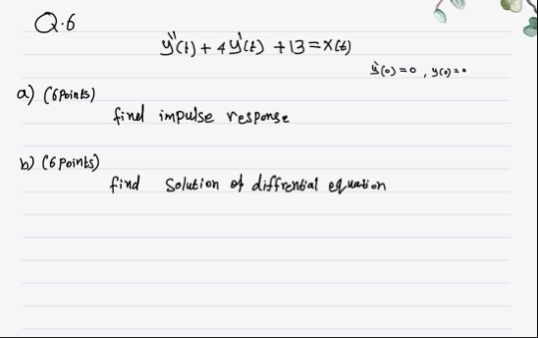 Q.6
y''(t) + 4y'(t) + 13 = x(t)
y'(0) = 0 , y(0) = 0
a) (6 Points)
find impulse response
b) (6 Points)
find Solution of diffrential equation